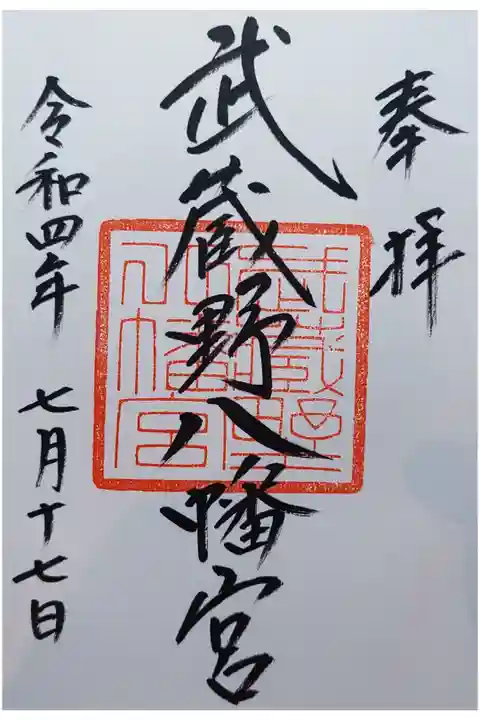 奉拝
武蔵野八幡宮
武蔵野
八幡宮
令和四年 七月十七日